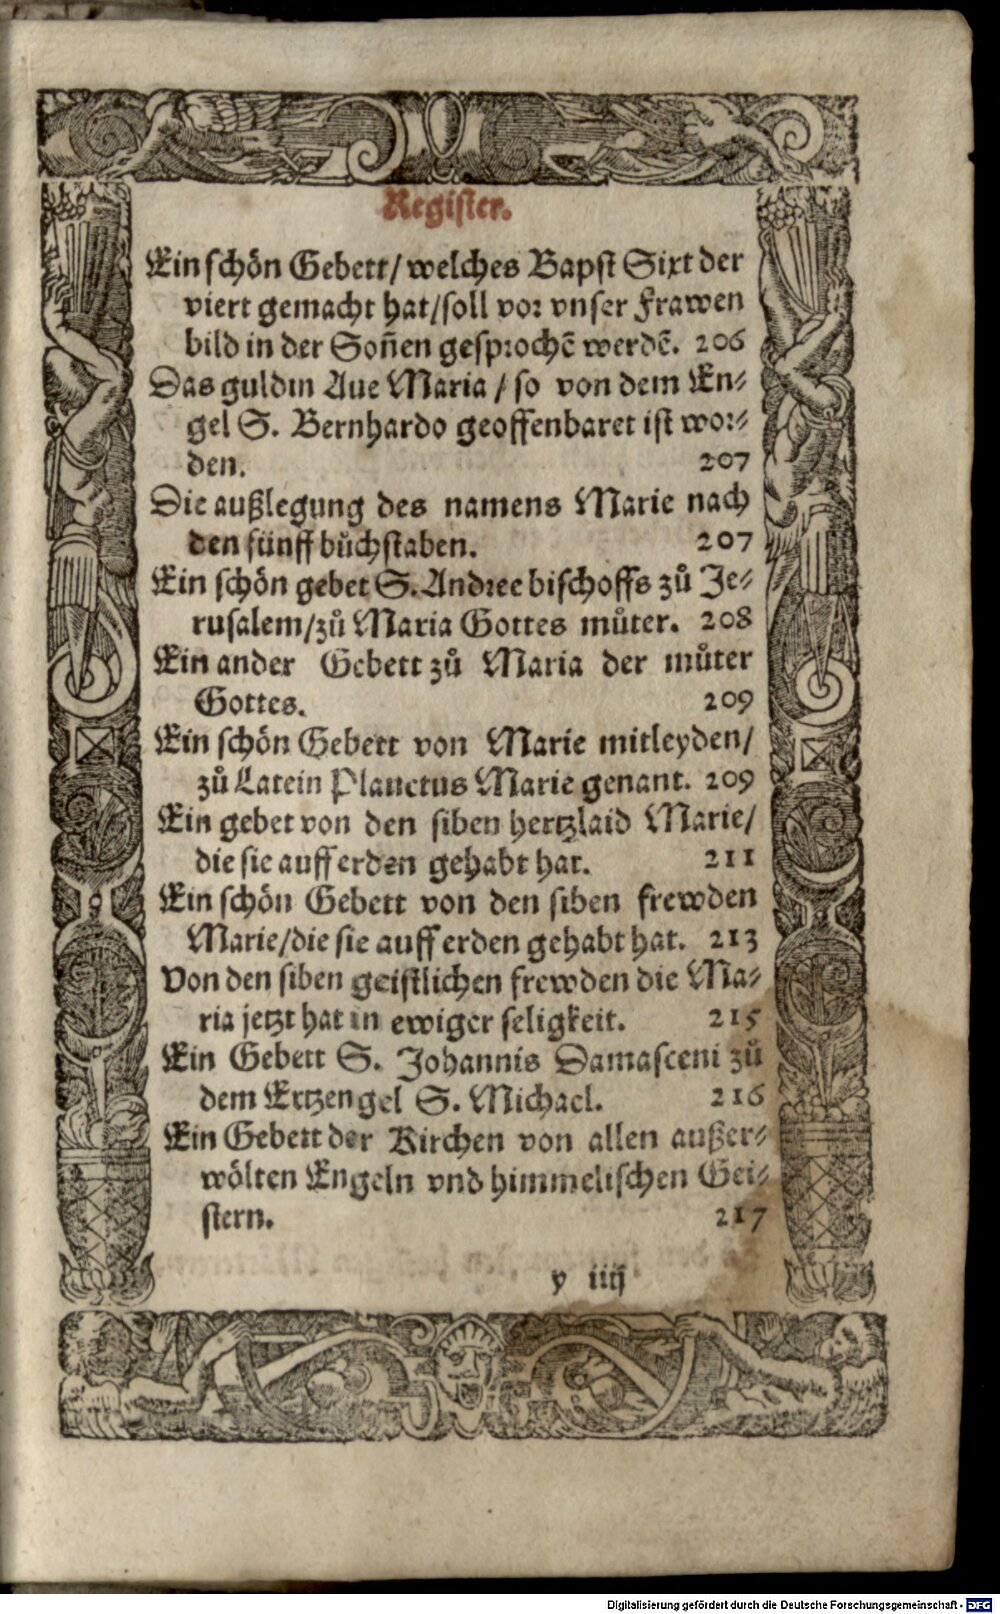 Register.
Ein schön Gebett/ welches Bapst Sixt der
viert gemacht hat/soll vor vnser Frawen
bild in der Soñen gesprochẽ werdẽ. 206
Das guldin Aue Maria / so von dem En⸗
gel S. Bernhardo geoffenbaret ist wor⸗
den. 207
Die außlegung des namens Marie nach
den fünff bůchstaben. 207
Ein schön gebet S. Andree bischoffs zů Je⸗
rusalem/zů Maria Gottes můter. 208
Ein ander Gebett zů Maria der můter
Gottes. 209
Ein schön Gebett von Marie mitleyden/
zů Latein Planctus Marie genant. 209
Ein gebet von den siben hertzlaid Marie/
die sie auff erden gehabt hat. 211
Ein schön Gebett von den siben frewden
Marie/die sie auff erden gehabt hat. 213
Von den siben geistlichen frewden die Ma⸗
ria jetzt hat in ewiger seligkeit. 215
Ein Gebett S. Johannis Damasceni zů
dem Ertzengel S. Michael. 216
Ein Gebett der Kirchen von allen außer⸗
wölten Engeln vnd himmelischen Gei⸗
stern. 217
y iiij
Digitalisierung gefördert durch die Deutsche Forschungsgemeinschaft - DFG